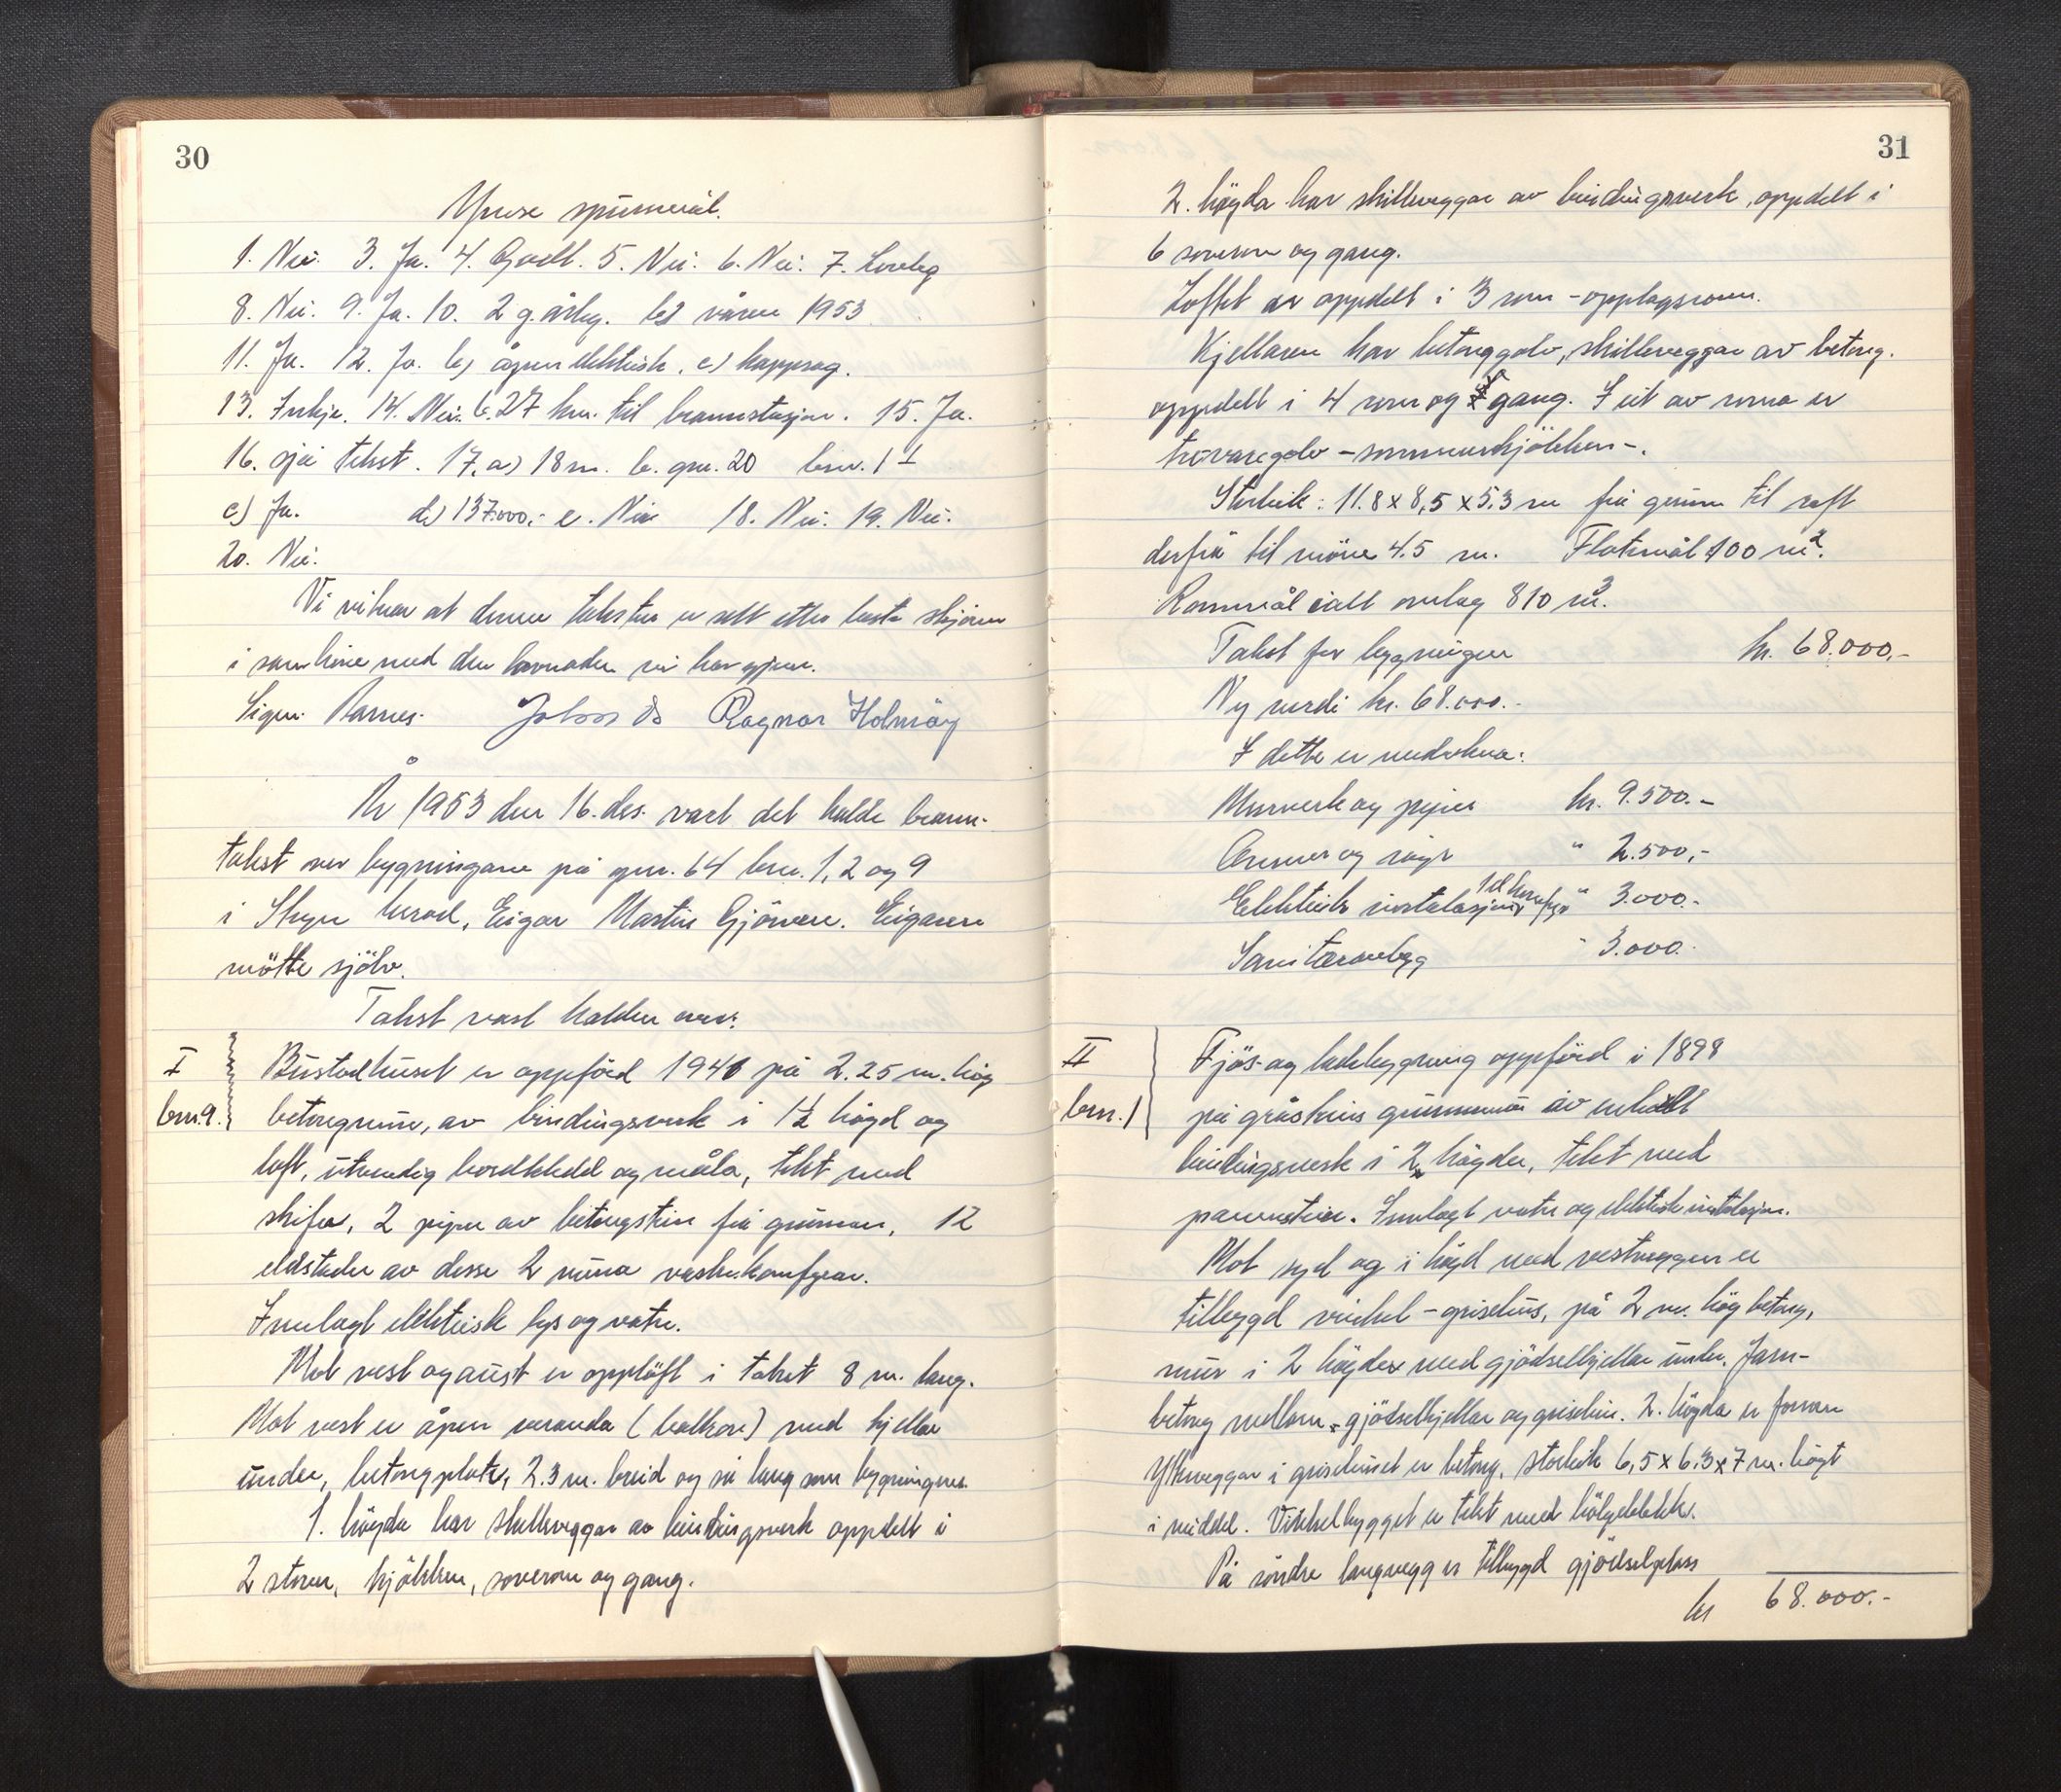 30
Ymse spursmål.
1. Nei. 3. Ja. 4. Godt. 5. Nei. 6. Nei. 7. Loveleg
8. Nei. 9. Ja. 10. 2 g. årleg. b) våren 1953
11. Ja. 12. Ja. b) open elektrisk. c) kappsag.
13. Inkje. 14. Nei. b. 27 km. til brannstasjon. 15. Ja.
16. sjå tekst. 17. a) 18 m. b. gnr. 20 bnr. 1
c) Ja. d.) 137.000,- e. Nei 18. Nei. 19. Nei.
20. Nei.
Vi vitnar at denne taksten er sett etter beste skjønn
i samhøve med den lovnaden vi har gjeve.
Sigm. Ragnar Holmøy
År 1953 den 16. des. vart det halde brann-
takst over bygningane på gnr. 64 bnr. 1, 2 og 9
i Stryn herad, Eigar Martin Gjörven. Eigaren
mötte sjölv.
Takst vart halden over:
I Bustadhuset er oppförd 1940 på 2.25 m. hög
bnr. 9. betongmur, av bindingsverk i 1½ högd og
loft, utvendig bordkledd og måla, tekt med
skifer, 2 piper av betongstein frå grunnen, 12
eldstader av desse 2 mura vaskekomfyrar.
Innlagt elektrisk lys og vatn.
Mot vest og aust er opplöft i taket 8 m. lang.
Mot vest er åpen veranda (balkon) med kjellar
under, betongplate, 2.3 m. breid og så lang som bygningen.
1. högda har skilleveggar av bindingsverk oppdelt i
2 stover, kjökken, soverom og gang.
31
2. högda har skilleveggar av bindingsverk, oppdelt i
6 soverom og gang.
Loftet er oppdelt i 3 rom - opplagsrom.
Kjellaren har betonggolv, skilleveggar av betong.
oppdelt i 4 rom og gang. I eit av roma er
trevaregolv - sommerkjökken -.
Storleik: 11.8 x 8,5 x 5.3 m frå grunn til raft
derfrå til möne 4.5 m. Flatemål 100 m².
Rommål ialt omlag 810 m³.
Takst for bygningen kr. 68.000,-
Ny verdi kr. 68.000.-
I dette er medrekna:
Murverk og piper kr. 9.500.-
Omner og rör " 2.500,-
Elektrisk instalasjon 1 el. komfyr " 3.000.-
Sanitæranlegg " 3.000.-
II Fjös- og ladebygning oppförd i 1898
bnr. 1 på gråsteins grunnmur av enkelt
bindingsverk i 2 högder, tekt med
pannestein. Innlagt vatn og elektrisk instalasjon.
Mot syd og i högd med vestveggen er
tilbygd vinkel - grisehus, på 2 m. hög betong,
mur i 2 högder med gjödselkjellar under. Jarn-
betong mellom gjödselkjellar og grisehus. 2. högda er forrom
Ytterveggar i grisehuset er betong, storleik 6,5 x 6.3 x 7 m. högt
i middel. Vinkelbygget er tekt med bölgeblekk.
På söndre langvegg er tilbygd gjödselplass
kr 68.000.-